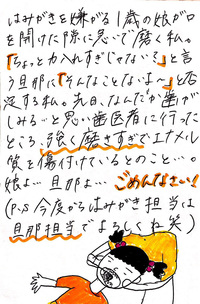 はみがきを嫌がる1歳の娘が口
を開けた隙に急いで磨く私。
「ちょっと力入れすぎじゃない?」と言
う旦那に「そんなことないよ〜」と否
定する私。先日、なんだか歯が
しみる…と思い歯医者に行った
ところ、強く磨きすぎでエナメル
質を傷付けているとのこと…。
娘よ…旦那よ…ごめんなさい!
(P.S 今度からはみがき担当は
旦那担当でよろしくね笑)